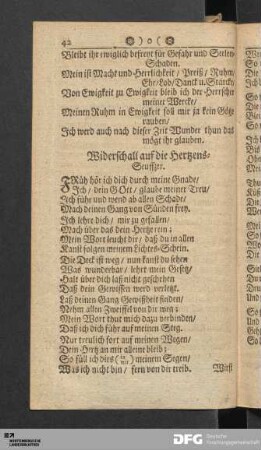 42 )o(
Bleibt ihr ewiglich befreyt für Gefahr und Seelen-
Schaden.
Mein ist Macht und Herrlichkeit / Preiß / Ruhm /
Ehr / Lob / Danck u. Stärcke /
Von Ewigkeit zu Ewigkeit bleib ich der Herrscher
meiner Wercke /
Meinen Ruhm in Ewigkeit soll mir ja kein Götze
rauben /
Ich werd auch nach dieser Zeit Wunder thun das
mögt ihr glauben.
Widerschall auf die Hertzens-
Seufftzer.
FRüh hör ich dich durch meine Gnade /
Ich / dein GOtt / glaube meiner Treu /
Ich führ und wend ab allen Schade /
Mach deinen Gang von Sünden frey.
Ich lehre dich / mir zu gefallen;
Mach über das dein Hertz rein;
Mein Wort leucht dir / daß du in allen
Kanst folgen meinem Lichten-Schein.
Die Deck ist weg / nun kanst du sehen
Was wunderbar / lehrt mein Gesetz /
Halt über dich laß nicht geschehen
Daß dein Gewissen werd verletzt.
Laß deinen Gang Gewißheit finden /
Nehm allen Zweiffel von dir weg;
Mein Wort thut mich dazu verbinden /
Daß ich dich führ auf meinen Steg.
Nur treulich fort auf meinen Wegen /
Dein Hertz an mir alleine bleib;
So füll ich dirs meinem Segen /
Was ich nicht bin / fern von dir treib.
Wirst
DFG
Deutsche
Forschungsgemeinschaft